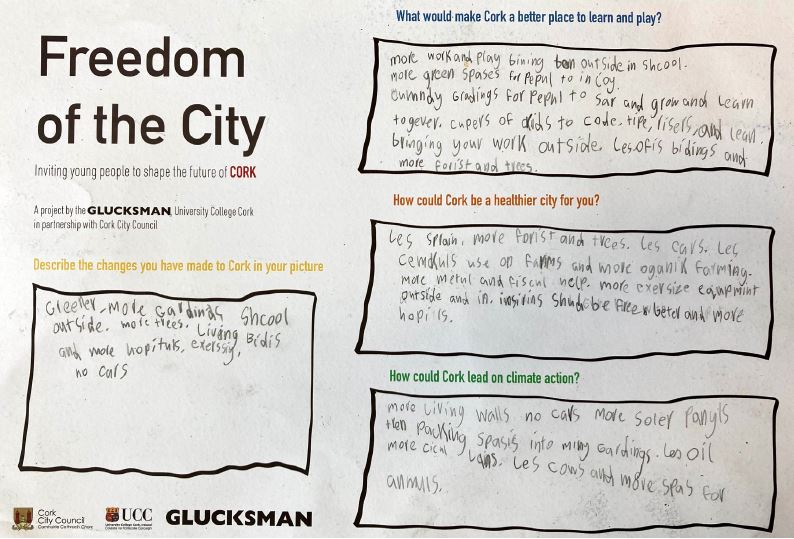 Freedom
of the City
Inviting young people to shape the future of CORK
A project by the GLUCKSMAN, University College Cork
in partnership with Cork City Council
Describe the changes you have made to Cork in your picture
Greener. more Gardinds Shcool
outside. more trees. Living Bidis
and more hopituls, exerssiy,
no cars
What would make Cork a better place to learn and play?
more work and play bining outside in shcool.
more green spases for Pepul to in Joy.
Gradings for Pepul to Sar and grow and Learn
togever. cupers of kids to code, tipe, risers, and lean.
bringing your work outside. Les ofis bidings and
more forist and trees.
How could Cork be a healthier city for you?
Les splain. more forist and trees. Les cars. Les
Cemckuls use on farms and more oganik farming.
more metul and fiscul help. more exersize equipmint
outside and in. insirins Shud be free or beter and more
hopitls.
How could Cork lead on climate action?
more Living walls no cars more Soler Panyls
tren Packing Spasis into miny Gardings. Les oil
more Lans. Les Cows and more spas for
anmuls.
Cork
City Council
Comhairle Cathrach Chorcaí
UCC
University College Cork, Ireland
Coláiste na hOllscoile Corcaigh
GLUCKSMAN